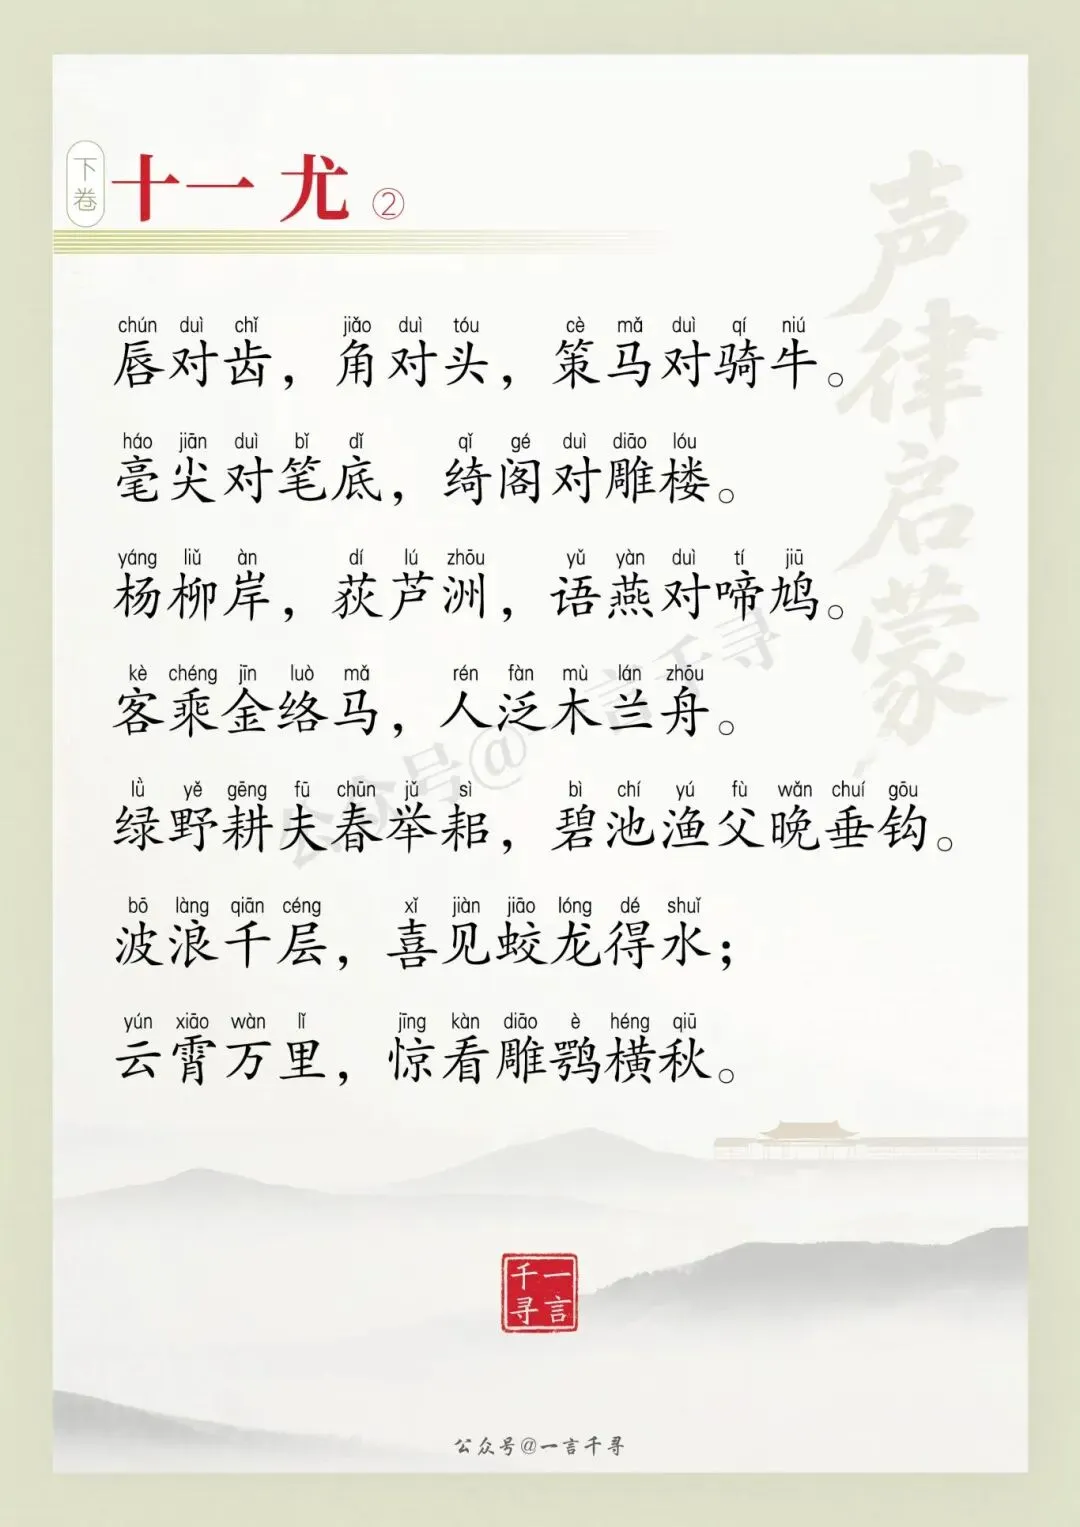 下卷
十一 尤 ②
声律启蒙
chún duì chǐ jiǎo duì tóu cè mǎ duì qí niú
唇对齿，角对头，策马对骑牛。
háo jiān duì bǐ dǐ qǐ gé duì diāo lóu
毫尖对笔底，绮阁对雕楼。
yáng liǔ àn dí lú zhōu yǔ yàn duì tí jiū
杨柳岸，荻芦洲，语燕对啼鸠。
kè chéng jīn luò mǎ rén fàn mù lán zhōu
客乘金络马，人泛木兰舟。
lǜ yě gēng fū chūn jǔ sì bì chí yú fù wǎn chuí gōu
绿野耕夫春举耜，碧池渔父晚垂钩。
bō làng qiān céng xǐ jiàn jiāo lóng dé shuǐ
波浪千层，喜见蛟龙得水；
yún xiāo wàn lǐ jīng kàn diāo è héng qiū
云霄万里，惊看雕鹗横秋。
公众号@一言千寻
一言千寻
公众号@一言千寻